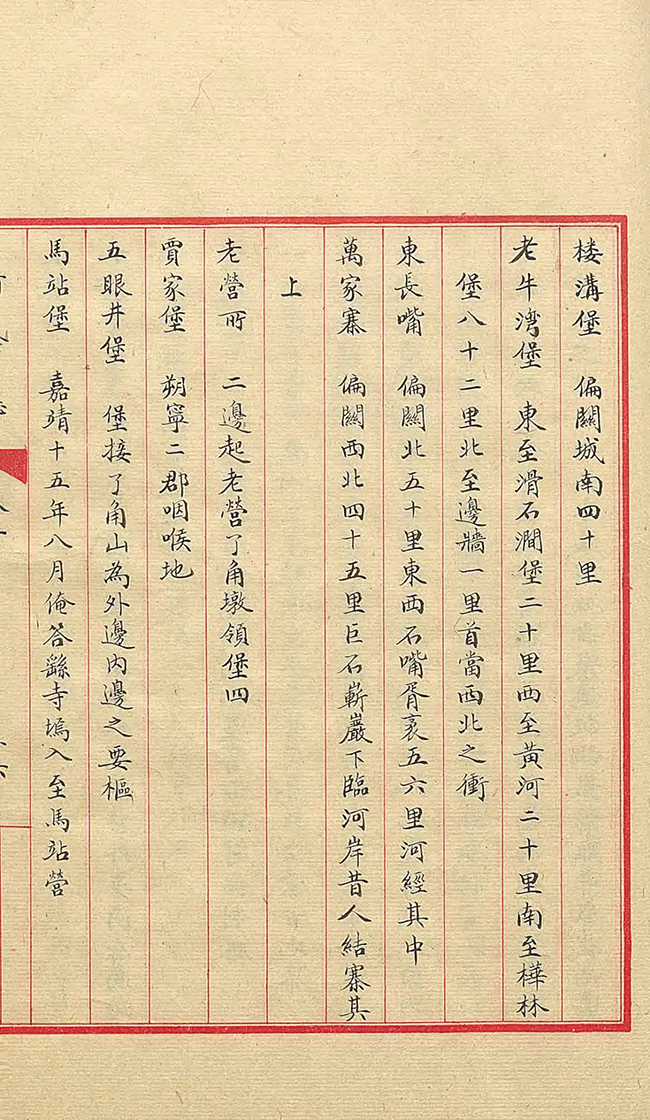 楼溝堡　偏關城南四十里
老牛灣堡　東至滑石澗堡二十里西至黄河二十里南至樺林
堡八十二里北至邊牆一里首當西北之衝
東長嘴　偏關北五十里東西石嘴胥袤五六里河經其中
萬家寨　偏關西北四十五里巨石嶄巖下臨河岸昔人結寨其
上
老營所　二邊起老營了角墩領堡四
賈家堡　朔寧二郡咽喉地
五眼井堡　堡接了角山為外邊内邊之要樞
馬站堡　嘉靖十五年八月俺答繇寺塢入至馬站營